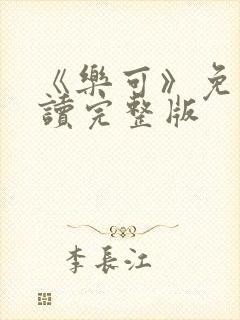 《樂可》免
讀完整版
李長江